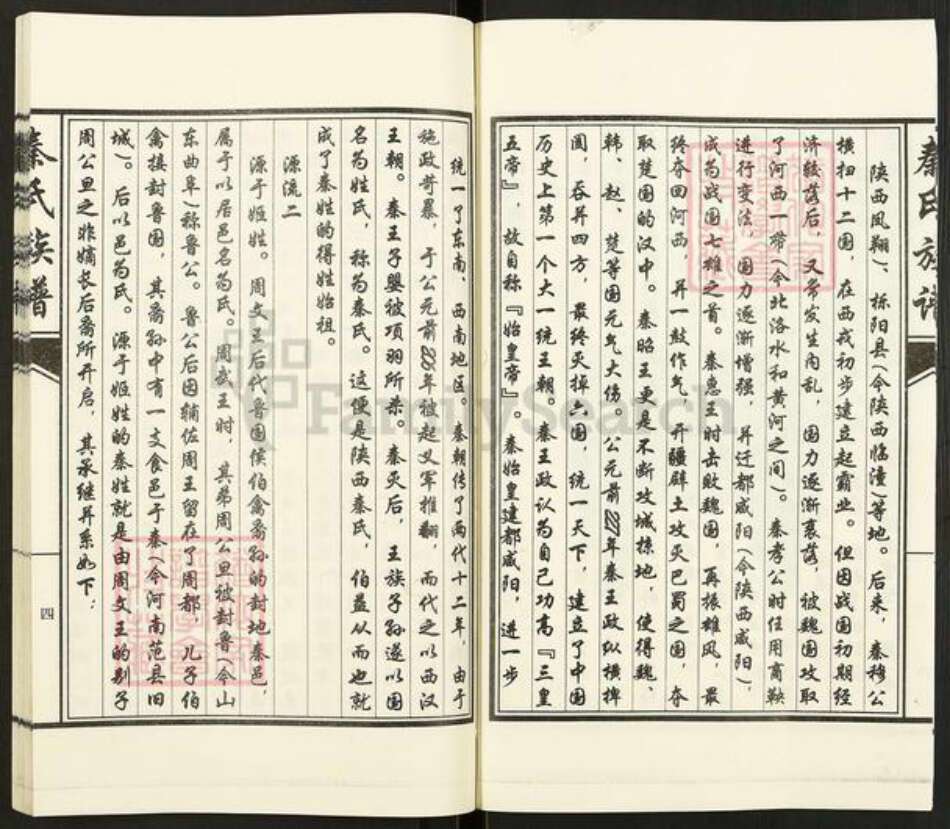 秦氏族谱
陕西凤翔)、栎阳县(今陕西临潼)等地。后来,秦穆公
横扫十二国,在西戎初步建立起霸业。但因战国初期经
济较落后,又常发生内乱,国力逐渐衰落,被魏国攻取
了河西一带(今北洛水和黄河之间)。秦孝公时任用商鞅
进行变法,国力逐渐增强,并迁都咸阳(今陕西咸阳),
成为战国七雄之首。秦惠王时击败魏国,再振雄风,最
终夺回河西,并一鼓作气,开疆辟土攻灭巴蜀之国,夺
取楚国的汉中。秦昭王更是不断攻城掠地,使得魏、
韩、赵、楚等国元气大伤。公元前 年秦王政纵横捭
阖,吞并四方,最终灭掉六国,统一天下,建立了中国
历史上第一个大一统王朝。秦王政认为自己功高『三皇
五帝』,故自称『始皇帝』。秦始皇建都咸阳,进一步
统一了东南、西南地区。秦朝传了两代十二年,由于
施政苛暴,于公元前 年被起义军推翻,而代之以西汉
王朝。秦王子婴被项羽所杀。秦灭后,王族子孙遂以国
名为姓氏,称为秦氏。这便是陕西秦氏,伯益从而也就
成了秦姓的得姓始祖。
源流二
源于姬姓。周文王后代鲁国侯伯禽裔孙的封地秦邑,
属于以居邑名为氏。周武王时,其弟周公旦被封鲁(今山
东曲阜)称鲁公。鲁公后因辅佐周王留在了周都,儿子伯
禽接封鲁国,其裔孙中有一支食邑于秦(今河南范县旧
城)。后以邑为氏。源于姬姓的秦姓就是由周文王的别子
周公旦之非嫡长后裔所开启,其承继并系如下:
秦氏族谱
四
FamilySearch